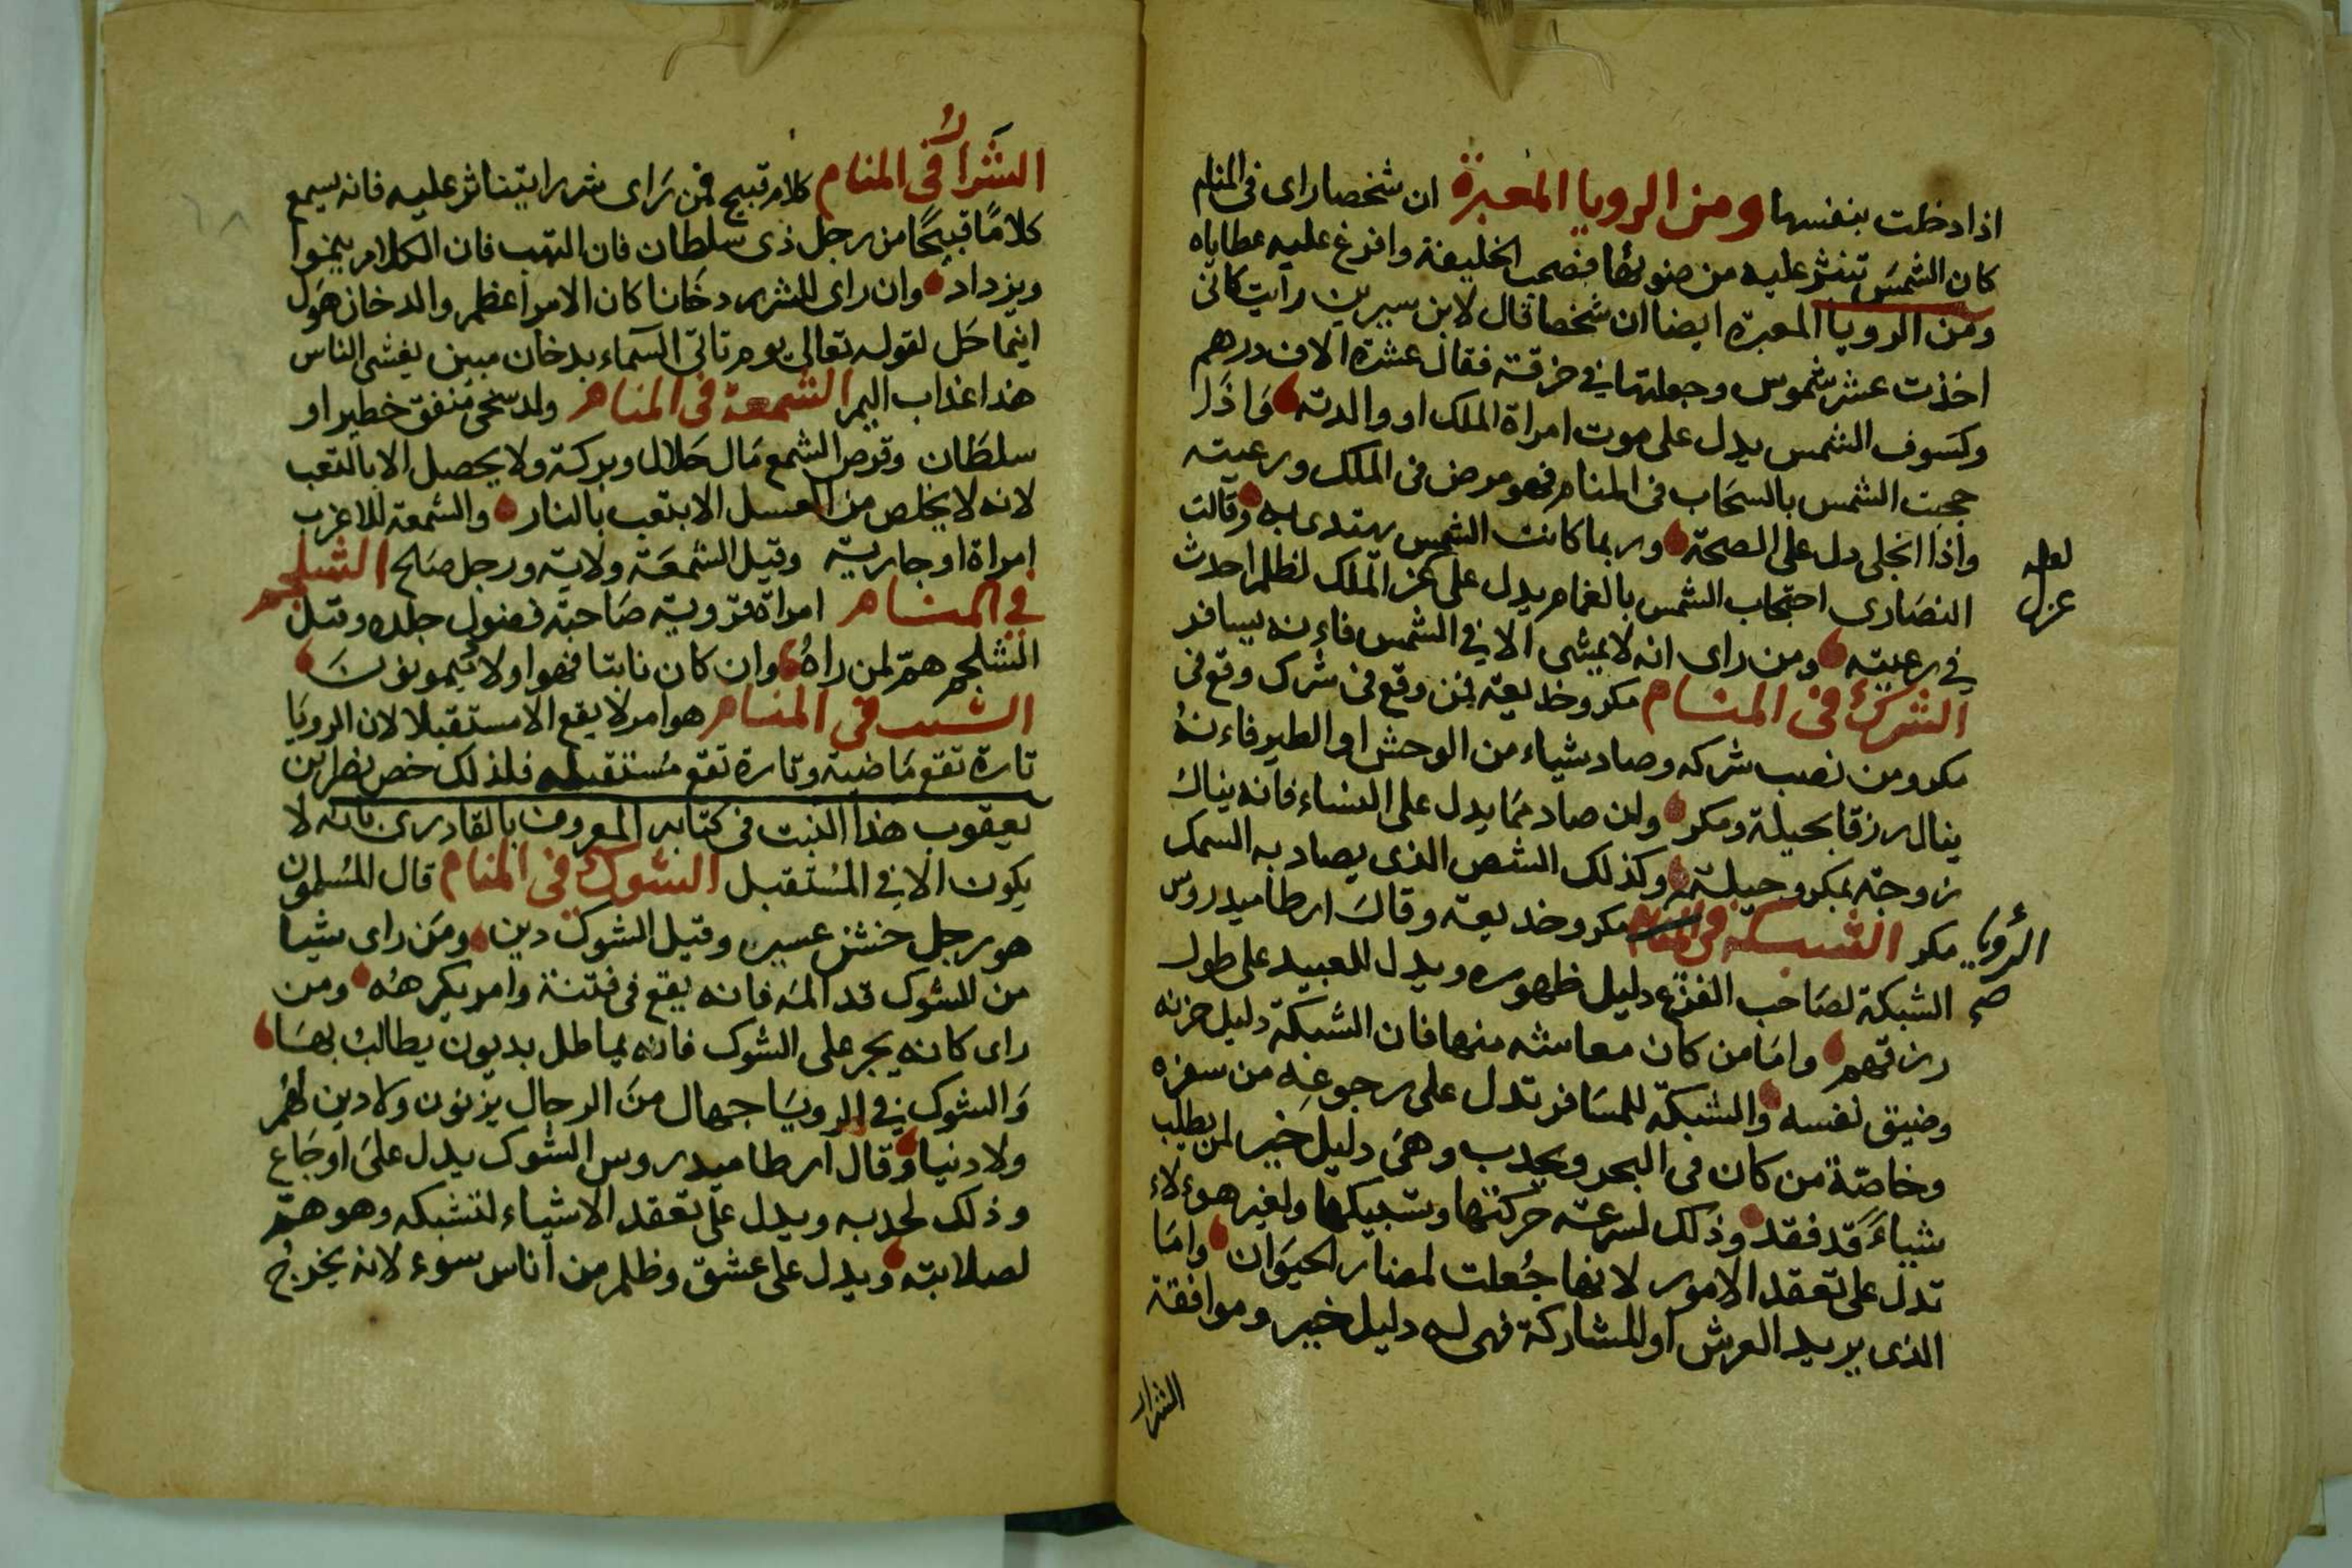 اذا دخلت بنفسها ومن الرويا المعبرة ان شخصا راى فى المنام
كان الشمس تنثر عليه من ضوئها فصحب الخليفة وافرغ عليه عطاياه
ومن الرويا المعبرة ايضا ان شخصا قال لابن سيرين رايت كانى
اخذت عشر شموس وجعلتها في خرقة فقال عشرة الاف درهم
وكسوف الشمس يدل على موت امراة الملك او والدته واذا
حجبت الشمس بالسحاب فى المنام فهو مرض فى الملك ورعيته
واذا انجلى دل على الصحة وربما كانت الشمس يهتدى به وقالت
النصارى احتجاب الشمس بالغمام يدل على عز الملك لظلم احدث
لعله
عزل
في رعيته ومن راى انه لا يمشى الا في الشمس فاءنه يسافر
الشرك فى المنام مكر وخديعة فمن وقع فى شرك وقع فى
مكر ومن نصب شركه وصاد شياء من الوحش او الطير فاءنه
ينال رزقا بحيلة ومكر ولن صاد مما يدل على النساء فانه يناك
زوجته بمكر وحيلة وكذلك الشص الذى يصاد به السمك
مكر الشبكة فى المنام مكر وخديعة وقال ارطاميدروس
الرؤيا
صح
الشبكة لصاحب الفزع دليل ظهوره ويدل للعبيد على طول
رزقهم واما من كان معاشه منها فان الشبكة دليل حزنه
وضيق نفسه والشبكة للمسافر تدل على رجوعه من سفره
وخاصة من كان فى البحر ويجدب وهى دليل خير لمن يطلب
شياء قد فقد وذلك لسرعة حركتها وتشبيكها ولغير هوءلاء
تدل على تعقد الامور لانها جعلت لمضار الحيوان واما
الذى يريد العرش او المشاركة فهى له دليل خير وموافقة
الشرار
الشرار فى المنام كلام قبيح فمن راى شررا يتناثر عليه فانه يسمع
كلاما قبيحا من رجل ذى سلطان فان التهب فان الكلام ينموا
ويزداد وان راى للشرر دخانا كان الامر اعظم والدخان هول
اينما حل لقوله تعالى يوم تاتى السماء بدخان مبين يغشى الناس
هذا عذاب اليم الشمعة فى المنام ولد سخى منفق خطير او
سلطان وقرص الشمع مال حلال وبركة ولا يحصل الا بالتعب
لانه لا يخلص من العسل الا بتعب بالنار والشمعة للاعزب
امراة او جارية وقيل الشمعة ولاية ورجل صالح الشلجم
في المنام امراة قروية صاحبة فضول جلده وقيل
الشلجم هم لمن راه وان كان نابتا فهو اولاد يموتون
الشيب فى المنام هو امر لا يقع الا مستقبلا لان الرويا
تارة تقع ماضية وتارة تقع مستقبله فلذلك خص نصر ابن
يعقوب هذا النبت فى كتابه المعروف بالقادرى بانه لا
يكون الا في المستقبل الشوك فى المنام قال المسلمون
هو رجل خشن عسير وقيل الشوك دين ومن راى شيا
من الشوك قد المه فانه يقع فى فتنة وامر يكرهه ومن
راى كانه يجر على الشوك فانه يماطل بديون يطالب بها
والشوك في الرويا جهال من الرجال يزنون ولا دين لهم
ولا دنيا وقال ارطاميدروس الشوك يدل على اوجاع
وذلك لحدبه ويدل على تعقد الاشياء لتشبكه وهو هم
لصلابته ويدل على عشق وظلم من اناس سوء لانه يخرج